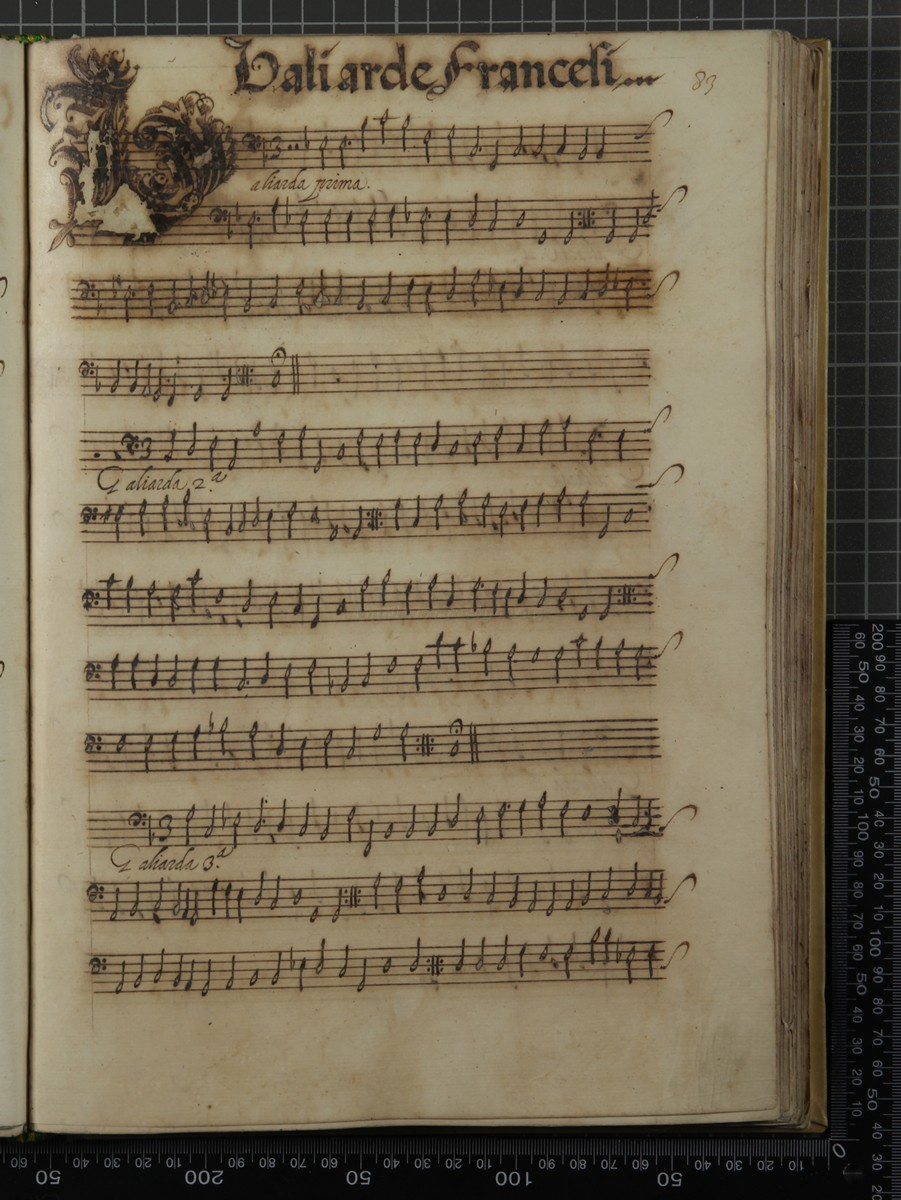 Galiarde Francesi 83
aliarda prima.
Galiarda 2.ª
Galiarda 3.ª
200 90 80 70 60 50 40 30 20 10 100 90 80 70 60 50 40 30 20
60 50 40 30 20 10 100 90 80 70 60 50 40 30 20 10
50 40 30 20 10 200 90 80 70 60 50 40 30 20 10 100 90 80 70 60 50 40 30 20 10 0